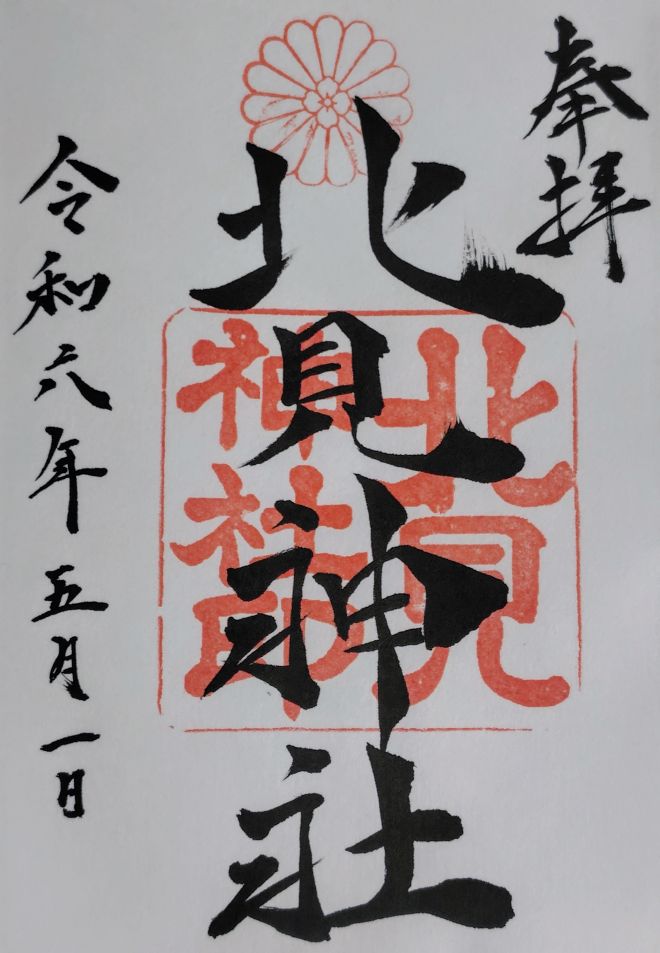 奉拝
北見神社
北見
神社印
令和六年五月一日